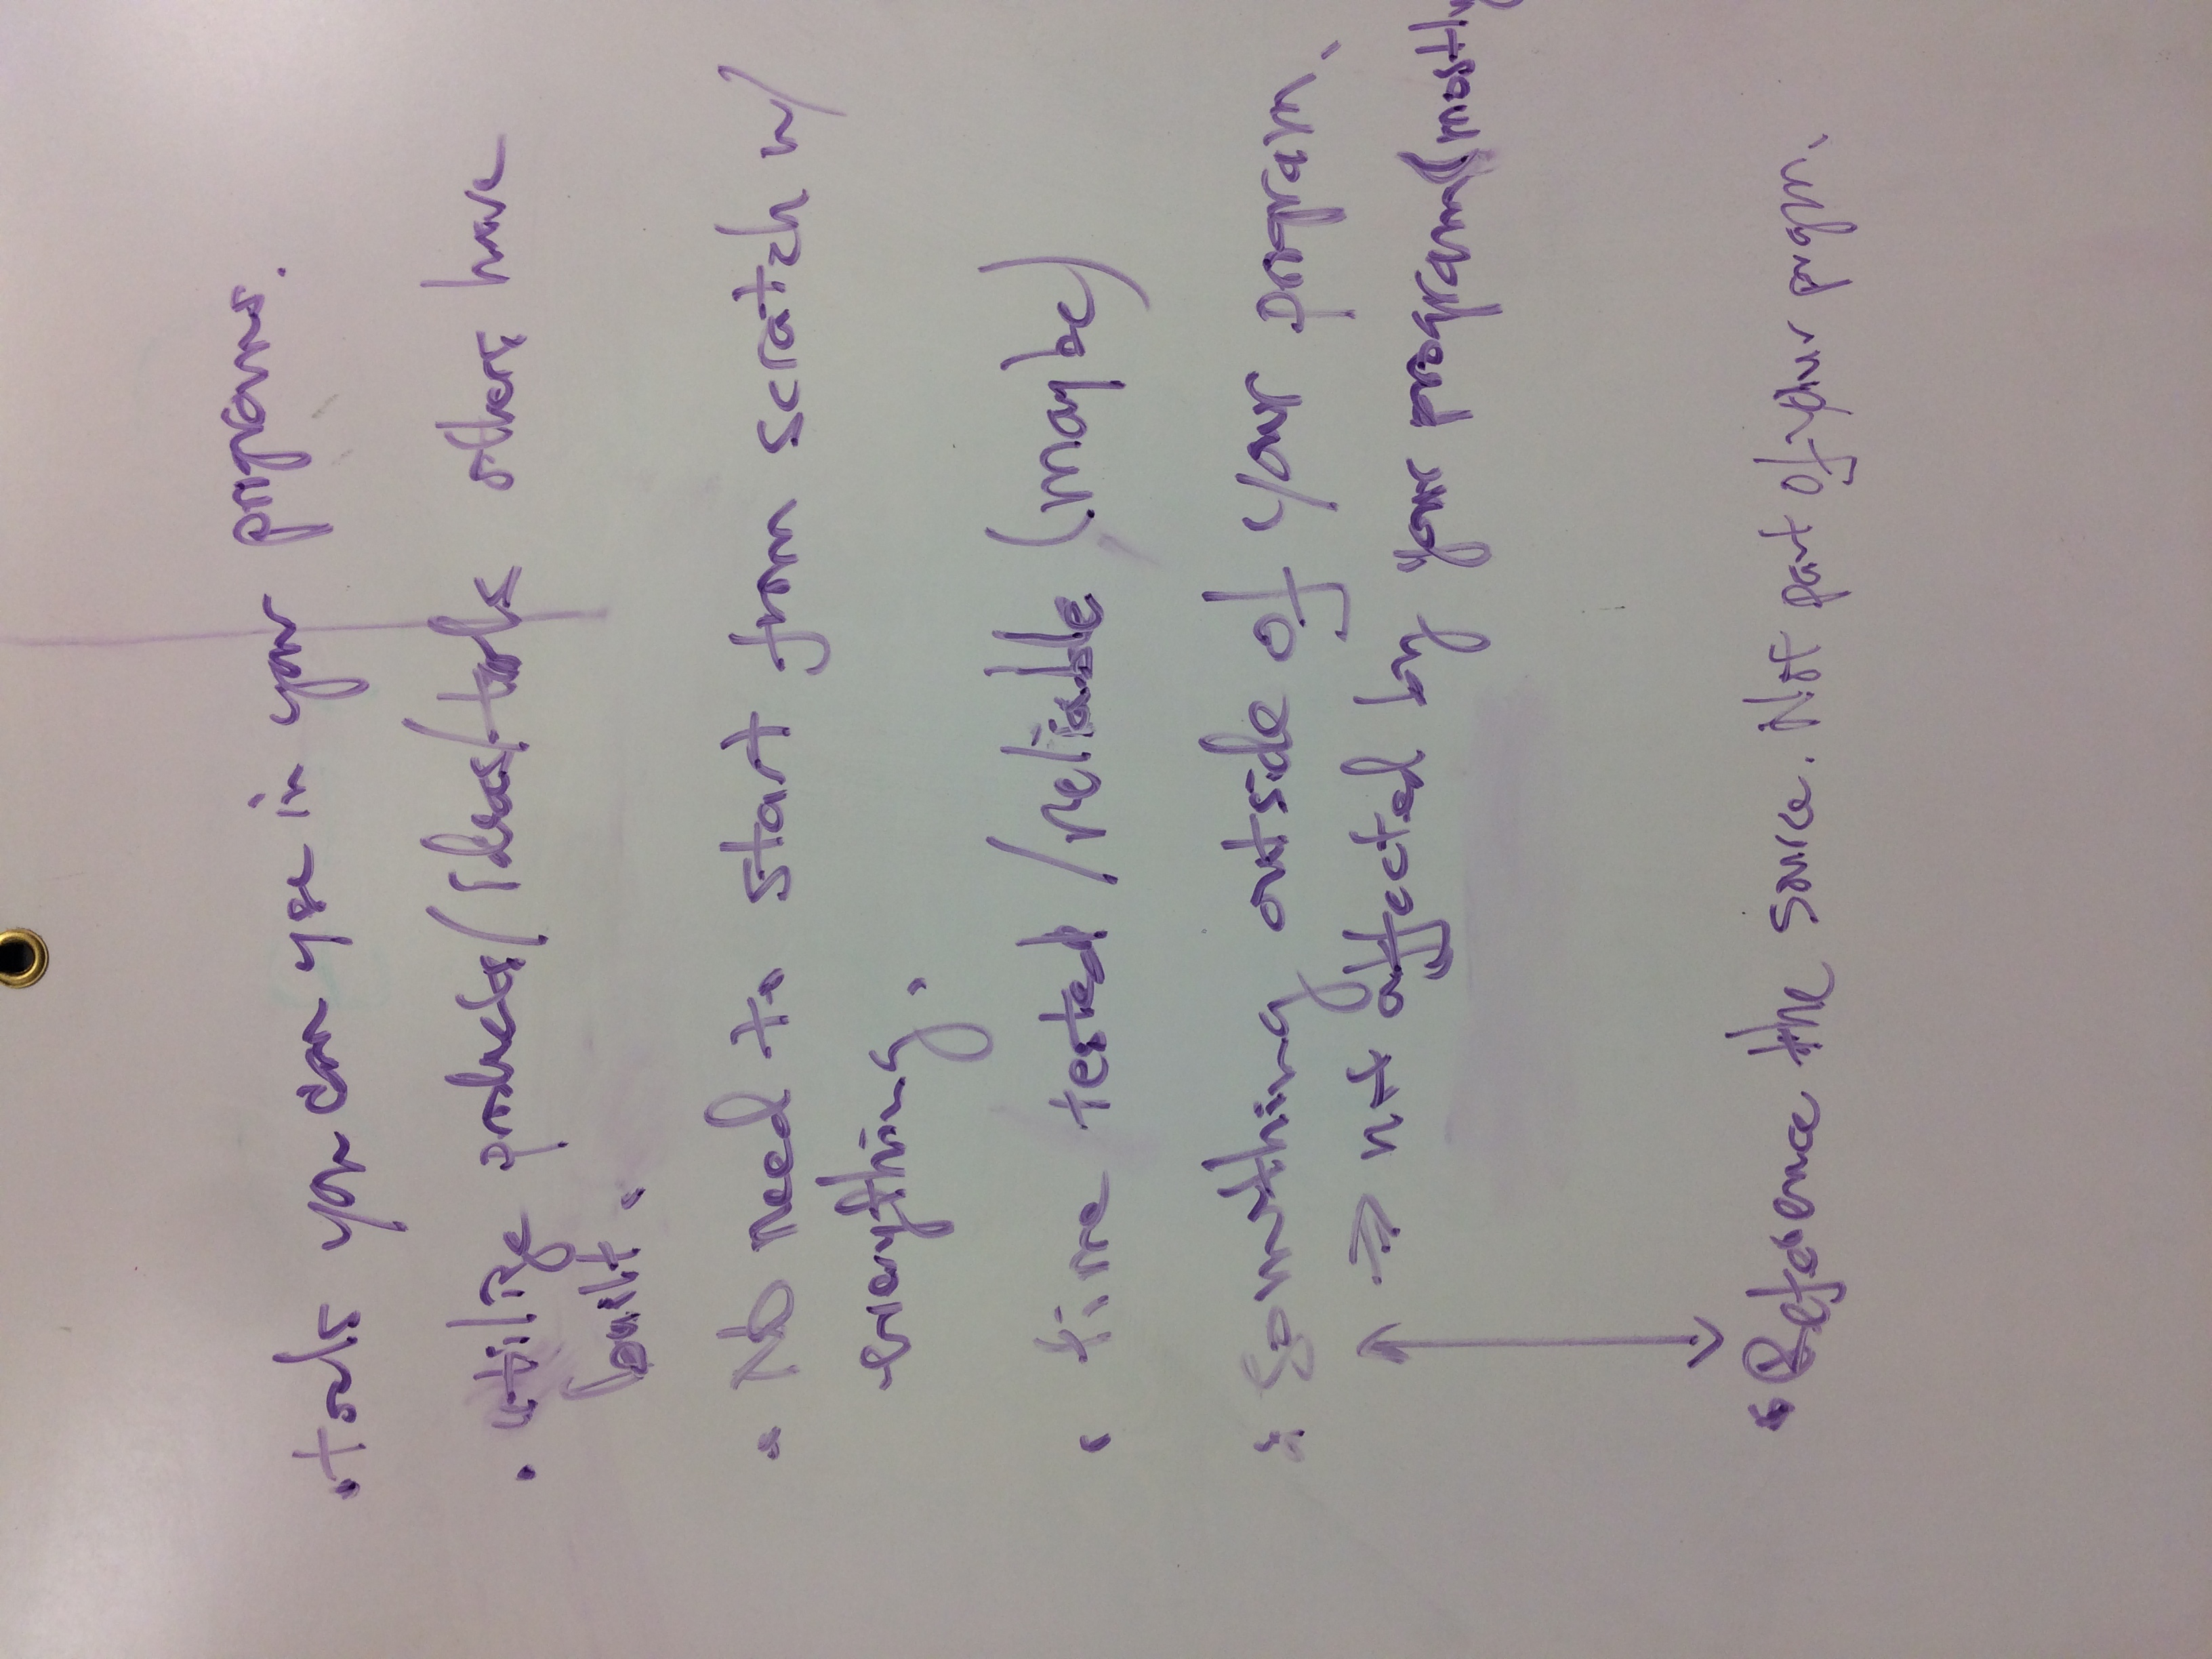 • tools you can use in your programs.
• utilize products/ideas/tools others have
built.
• No need to start from scratch w/
everything.
• time tested/reliable (maybe)
• Something outside of your program.
⇒ not affected by your program (mostly
• Reference the source. Not part of your prgm.